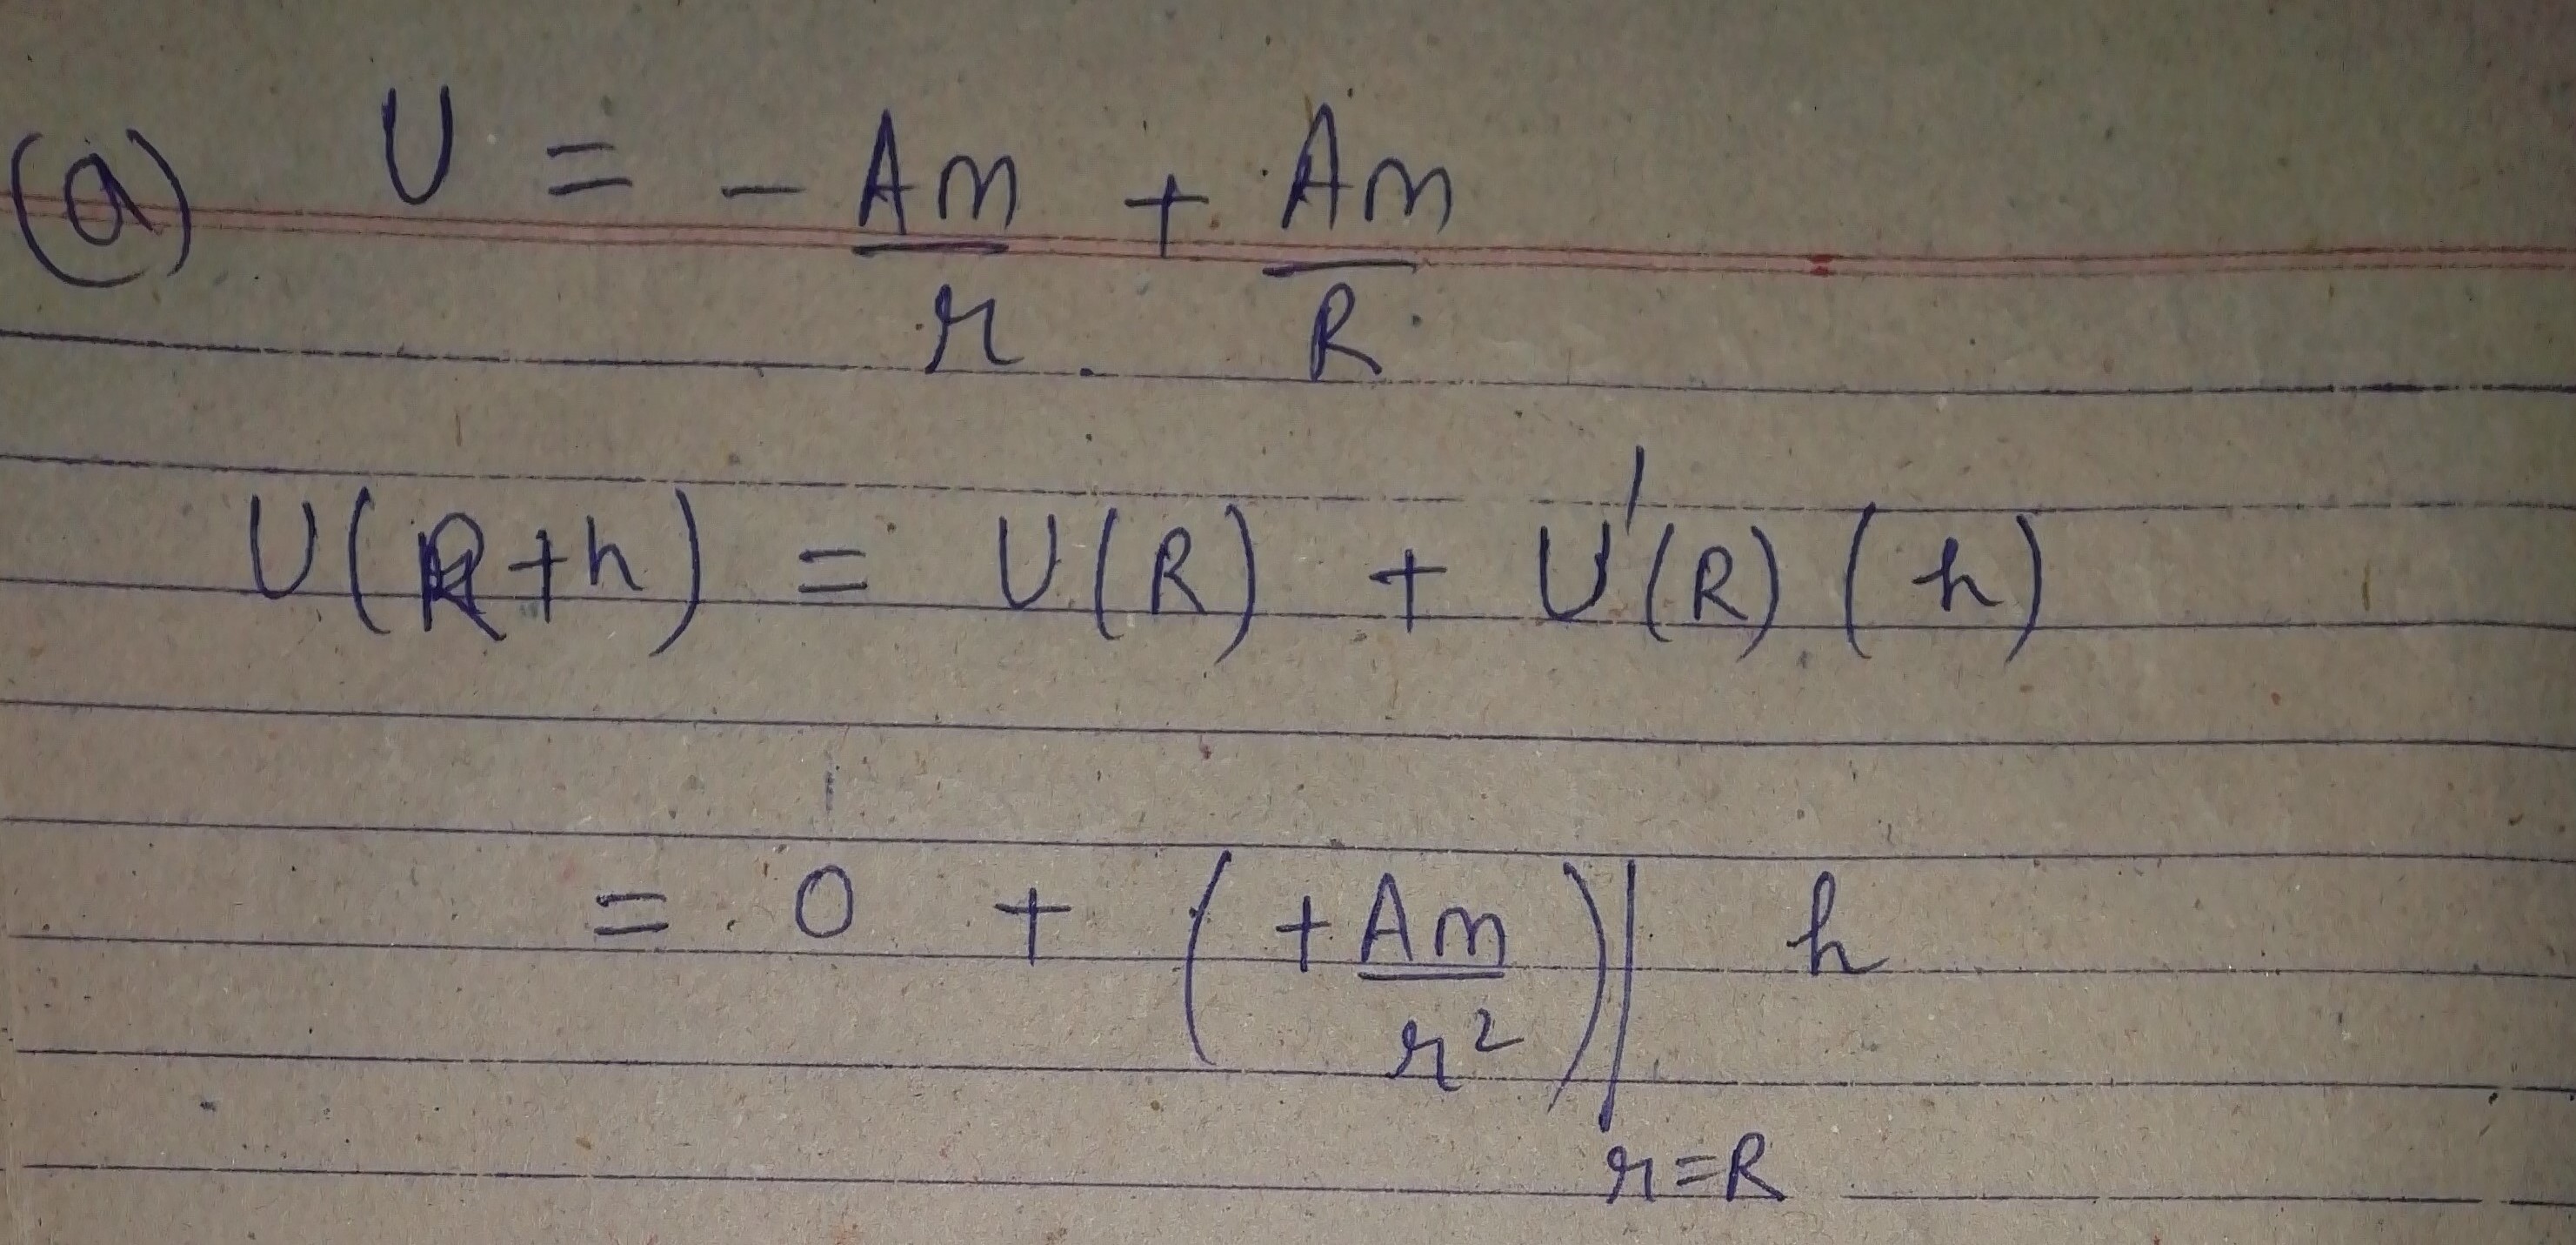 (a) U = - Am/r + Am/R
U(R+h) = U(R) + U'(R) (h)
= 0 + (+Am/r²)| r=R h